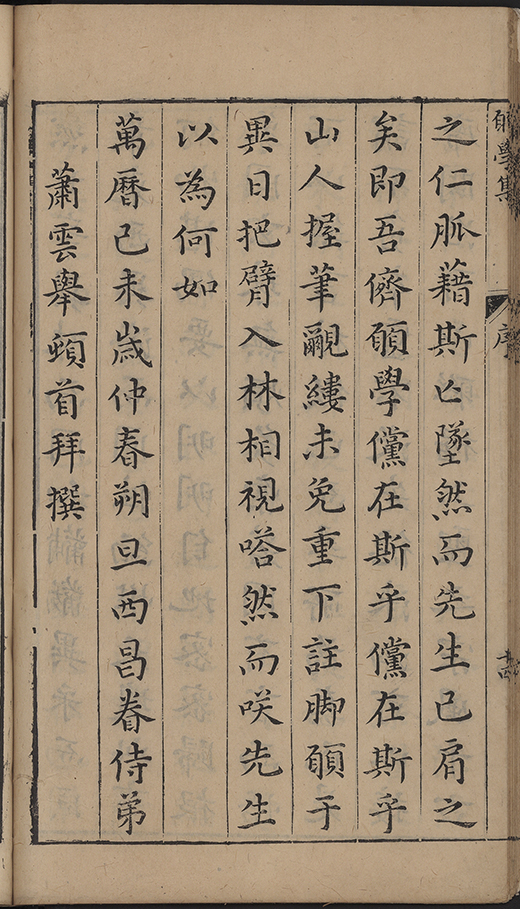 願學集
序
之仁脈藉斯亡墜然而先生已肩之
矣卽吾儕願學儻在斯乎儻在斯乎
山人握筆覼縷未免重下註脚願于
異日把臂入林相視嗒然而咲先生
以為何如
萬曆己未歲仲春朔旦西昌眷侍弟
蕭雲舉頓首拜撰